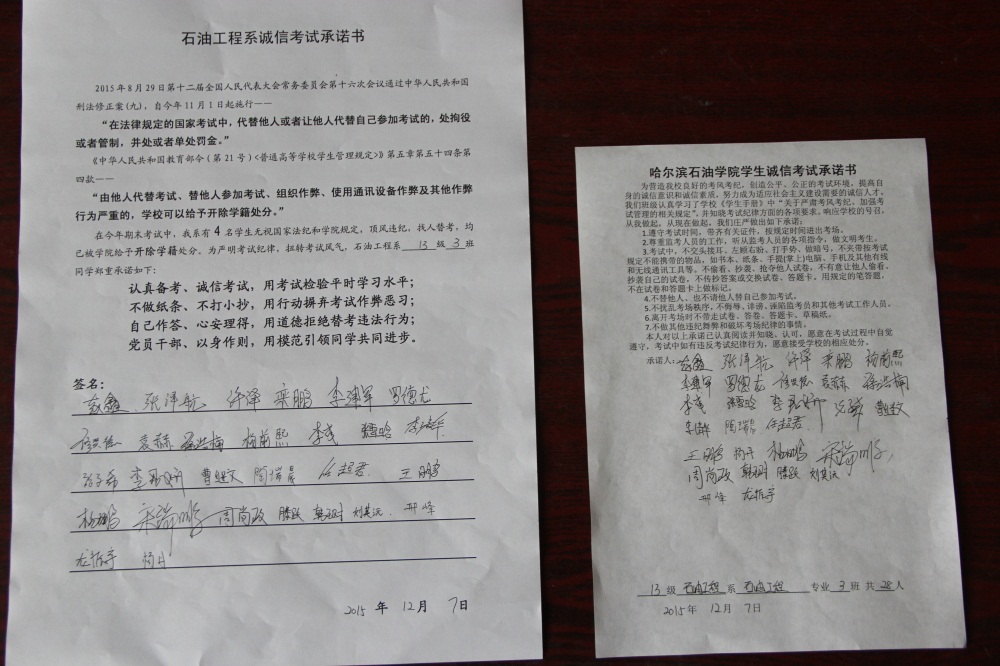 石油工程系诚信考试承诺书
2015年8月29日第十二届全国人民代表大会常务委员会第十六次会议通过中华人民共和国
刑法修正案(九)，自今年11月1日起施行——
“在法律规定的国家考试中，代替他人或者让他人代替自己参加考试的，处拘役
或者管制，并处或者单处罚金。”
《中华人民共和国教育部令(第21号)<普通高等学校学生管理规定>》第五章第五十四条第
四款——
“由他人代替考试、替他人参加考试、组织作弊、使用通讯设备作弊及其他作弊
行为严重的，学校可以给予开除学籍处分。”
在今年期末考试中，我系有4名学生无视国家法纪和学院规定，顶风违纪，找人替考，均
已被学院给予开除学籍处分。为严明考试纪律，扭转考试风气，石油工程系 13 级 3 班
同学郑重承诺如下：
认真备考、诚信考试，用考试检验平时学习水平；
不做纸条、不打小抄，用行动摒弃考试作弊恶习；
自己作答、心安理得，用道德拒绝替考违法行为；
党员干部、以身作则，用模范引领同学共同进步。
签名：
张泽航 仵泽 栾鹏 罗德龙
袁赫 杨蔚熙 李彧
陶瑞晨 任超君 王鹏
杨鹏 宋瑞鹏 周尚政 滕跃 韩砚时 刘其沅 邢峰
龙振宇 杨丹
2015 年 12 月 7 日
哈尔滨石油学院学生诚信考试承诺书
为营造我校良好的考风考纪，创造公平、公正的考试环境，提高自
身的诚信意识和诚信素质，努力成为适应社会主义建设需要的诚信人才，
我们班级认真学习了学校《学生手册》中“关于严肃考风考纪，加强考
试管理的相关规定”，并知晓考试纪律方面的各项要求。响应学校的号召，
从我做起，从现在做起，我们庄严做出如下承诺：
1.遵守考试时间，带齐有关证件，按规定时间进出考场。
2.尊重监考人员的工作，听从监考人员的各项指令，做文明考生。
3.考试中，不交头接耳、左顾右盼、打手势、做暗号，不夹带按考试
规定不能携带的物品，如书本、纸条、手提(掌上)电脑、手机及其他有线
和无线通讯工具等。不偷看、抄袭、抢夺他人试卷，不有意让他人偷看、
抄袭自己的试卷，不传抄答案或交换试卷、答题卡。用规定的笔答题，
不在试卷和答题卡上做标记。
4.不替他人、也不请他人替自己参加考试。
5.不扰乱考场秩序，不侮辱、诽谤、诬陷监考员和其他考试工作人员。
6.离开考场时不带走试卷、答卷、答题卡、草稿纸。
7.不做其他违纪舞弊和破坏考场纪律的事情。
本人对以上承诺已认真阅读并知晓、认可，愿意在考试过程中自觉
遵守，考试中如有违反考试纪律行为，愿意接受学校的相应处分。
承诺人： 张泽航 仵泽 栾鹏 杨蔚熙
罗德龙 袁赫
李彧
陶瑞晨 任超君
王鹏 杨丹 杨鹏 宋瑞鹏
周尚政 韩砚时 滕跃 刘其沅
邢峰 龙振宇
13 级 石油工程 系 石油工程 专业 3 班 共 28 人
2015 年 12 月 7 日